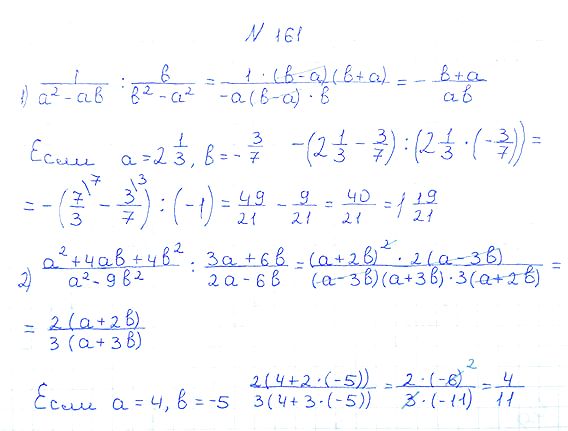 N 161
1) 1/(a² - ab) : b/(b² - a²) = (1 · (b - a)(b + a))/(-a(b - a) · b) = - (b + a)/(ab)
Если a = 2 1/3, b = - 3/7 -(2 1/3 - 3/7) : (2 1/3 · (- 3/7)) =
= -(7/3 \7 - 3/7 \3) : (-1) = 49/21 - 9/21 = 40/21 = 1 19/21
2) (a² + 4ab + 4b²)/(a² - 9b²) : (3a + 6b)/(2a - 6b) = ((a + 2b)² · 2(a - 3b))/((a - 3b)(a + 3b) · 3(a + 2b)) =
= 2(a + 2b)/3(a + 3b)
Если a = 4, b = -5 2(4 + 2 · (-5))/3(4 + 3 · (-5)) = 2 · (-6) 2/3 · (-11) = 4/11